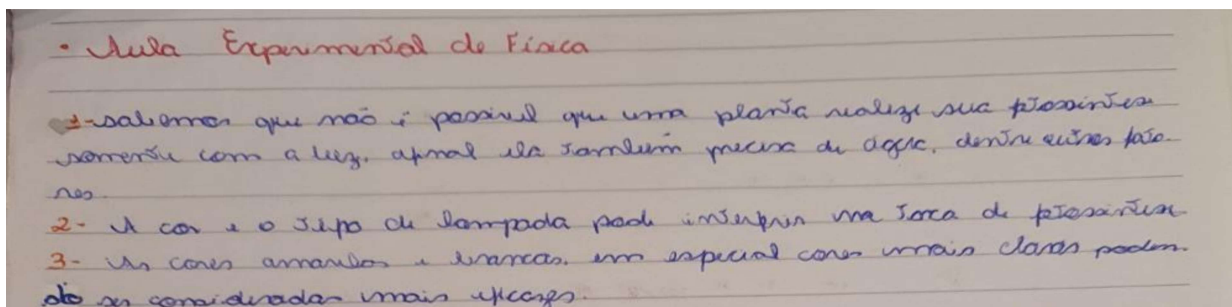 • Aula Experimental de Física
1- sabemos que não é possível que uma planta realize sua fotossíntese
somente com a luz, afinal ela também precisa de água, dentre outros fato-
res.
2- A cor e o tipo de lâmpada pode interferir na taxa de fotossíntese
3- As cores amarelas e brancas, em especial cores mais claras podem
ser consideradas mais eficazes.